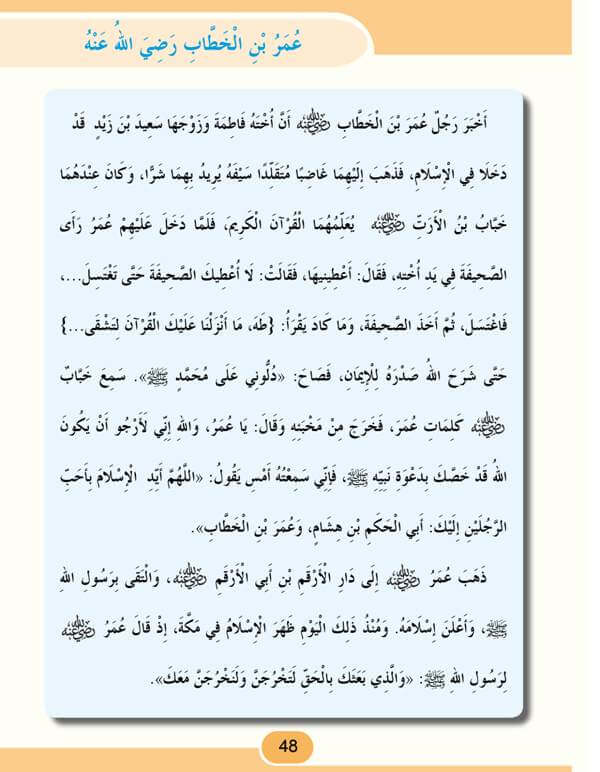 عُمَرُ بْنِ الْخَطَّابِ رَضِيَ اللهُ عَنْهُ
أَخْبَرَ رَجُلٌ عُمَرَ بْنَ الْخَطَّابِ رضي الله عنه أَنَّ أُخْتَهُ فَاطِمَةَ وَزَوْجَهَا سَعِيدَ بْنَ زَيْدٍ قَدْ
دَخَلَا فِي الْإِسْلَامِ، فَذَهَبَ إِلَيْهِمَا غَاضِبًا مُتَقَلِّدًا سَيْفَهُ يُرِيدُ بِهِمَا شَرًّا، وَكَانَ عِنْدَهُمَا
خَبَّابُ بْنُ الْأَرَتِّ رضي الله عنه يُعَلِّمُهُمَا الْقُرْآنَ الْكَرِيمَ، فَلَمَّا دَخَلَ عَلَيْهِمْ عُمَرُ رَأَى
الصَّحِيفَةَ فِي يَدِ أُخْتِهِ، فَقَالَ: أَعْطِينِيهَا، فَقَالَتْ: لَا أُعْطِيكَ الصَّحِيفَةَ حَتَّى تَغْتَسِلَ...،
فَاغْتَسَلَ، ثُمَّ أَخَذَ الصَّحِيفَةَ، وَمَا كَادَ يَقْرَأُ: {طَهَ، مَا أَنْزَلْنَا عَلَيْكَ الْقُرْآنَ لِتَشْقَى...}
حَتَّى شَرَحَ اللهُ صَدْرَهُ لِلْإِيمَانِ، فَصَاحَ: «دُلُّونِي عَلَى مُحَمَّدٍ ﷺ». سَمِعَ خَبَّابٌ
رضي الله عنه كَلِمَاتِ عُمَرَ، فَخَرَجَ مِنْ مَخْبَئِهِ وَقَالَ: يَا عُمَرُ، وَاللهِ إِنِّي لَأَرْجُو أَنْ يَكُونَ
اللهُ قَدْ خَصَّكَ بِدَعْوَةِ نَبِيِّهِ ﷺ، فَإِنِّي سَمِعْتُهُ أَمْسِ يَقُولُ: «اللَّهُمَّ أَيِّدِ الْإِسْلَامَ بِأَحَبِّ
الرَّجُلَيْنِ إِلَيْكَ: أَبِي الْحَكَمِ بْنِ هِشَامٍ، وَعُمَرَ بْنِ الْخَطَّابِ».
ذَهَبَ عُمَرُ رضي الله عنه إِلَى دَارِ الْأَرْقَمِ بْنِ أَبِي الْأَرْقَمِ رضي الله عنه، وَالْتَقَى بِرَسُولِ اللهِ
ﷺ، وَأَعْلَنَ إِسْلَامَهُ. وَمُنْذُ ذَلِكَ الْيَوْمِ ظَهَرَ الْإِسْلَامُ فِي مَكَّةَ، إِذْ قَالَ عُمَرُ رضي الله عنه
لِرَسُولِ اللهِ ﷺ: «وَالَّذِي بَعَثَكَ بِالْحَقِّ لَتَخْرُجَنَّ وَلَنَخْرُجَنَّ مَعَكَ».
48